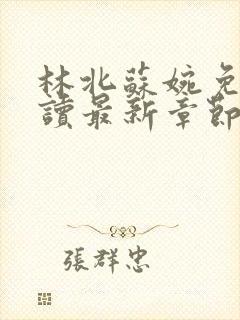 林北蘇婉免
讀最新章節
張群忠